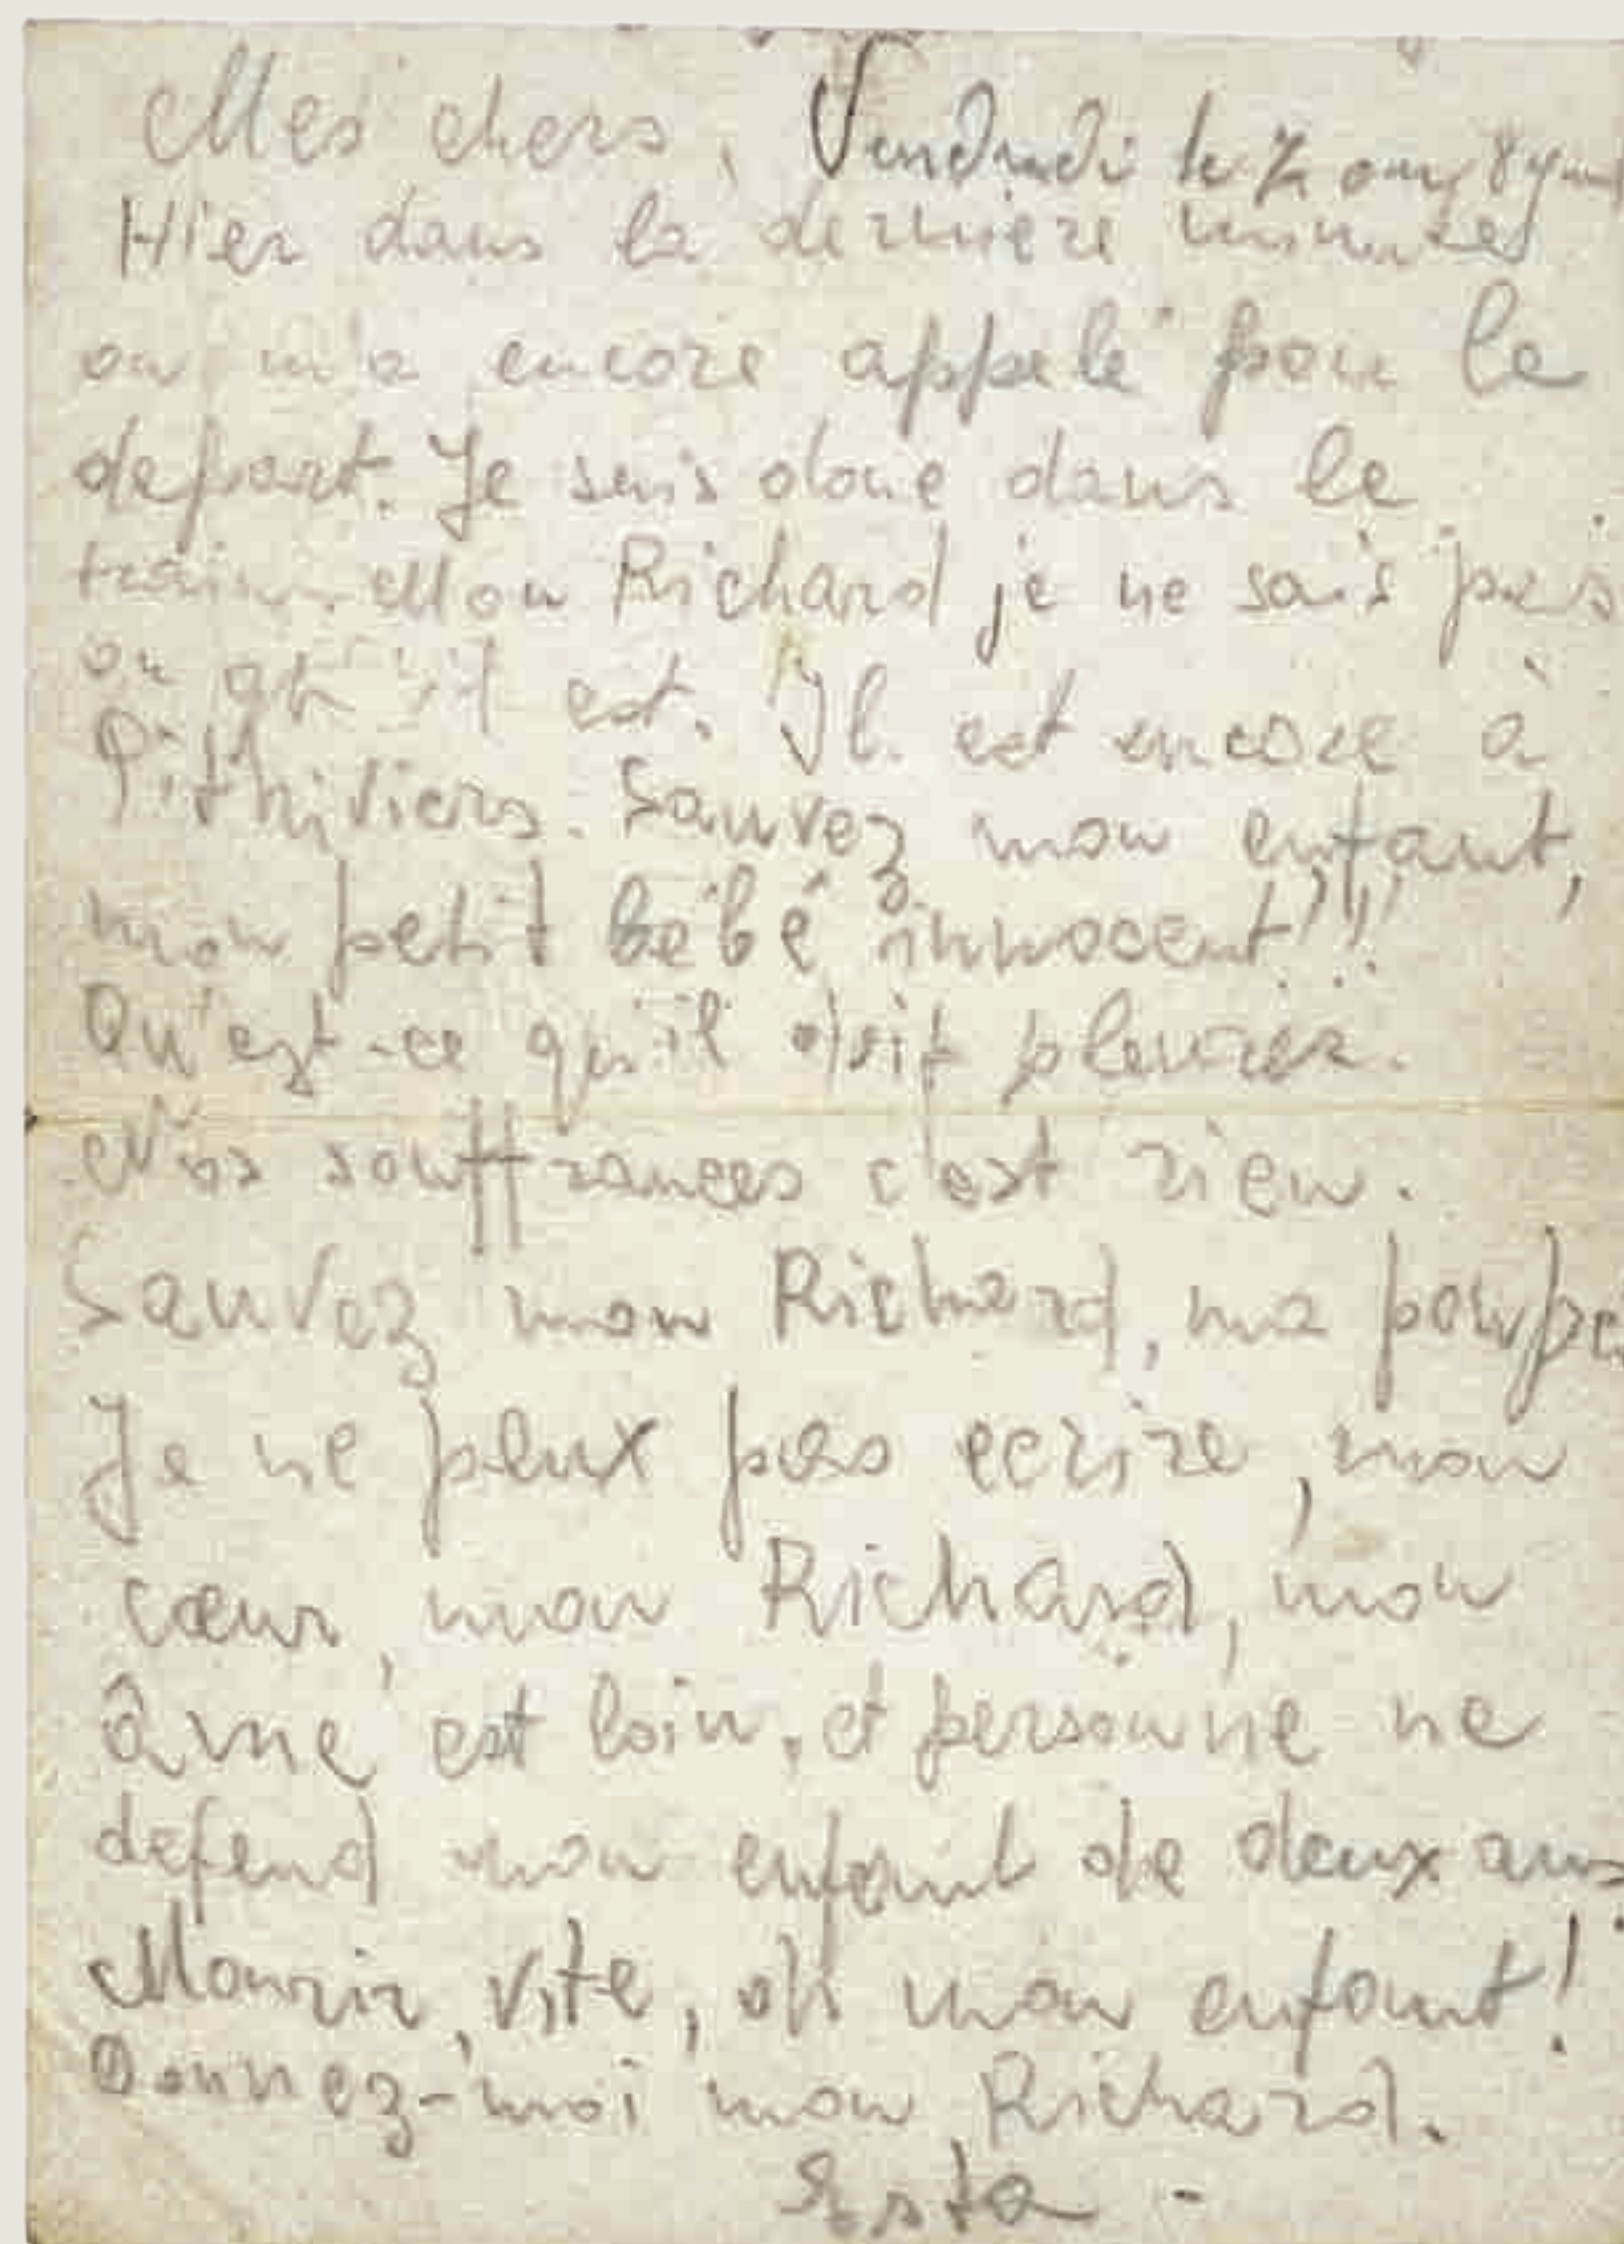 Mes chers, Vendredi le 7
Hier dans la dernière minutes
on m'a encore appelé pour le
depart. Je suis donc dans le
train. Mon Richard je ne sais pas
ou qu'il est. Il est encore à
Pithiviers. Sauvez mon enfant,
mon petit bébé innocent!!!
Qu'est-ce qu'il doit pleurer.
Nos souffrances c'est rien.
Sauvez mon Richard, ma
Je ne peux pas ecrire, mon
cœur, mon Richard, mon
âme est loin, et personne ne
defend mon enfant de deux ans.
Mourir, vite, oh mon enfant!
Donnez-moi mon Richard.